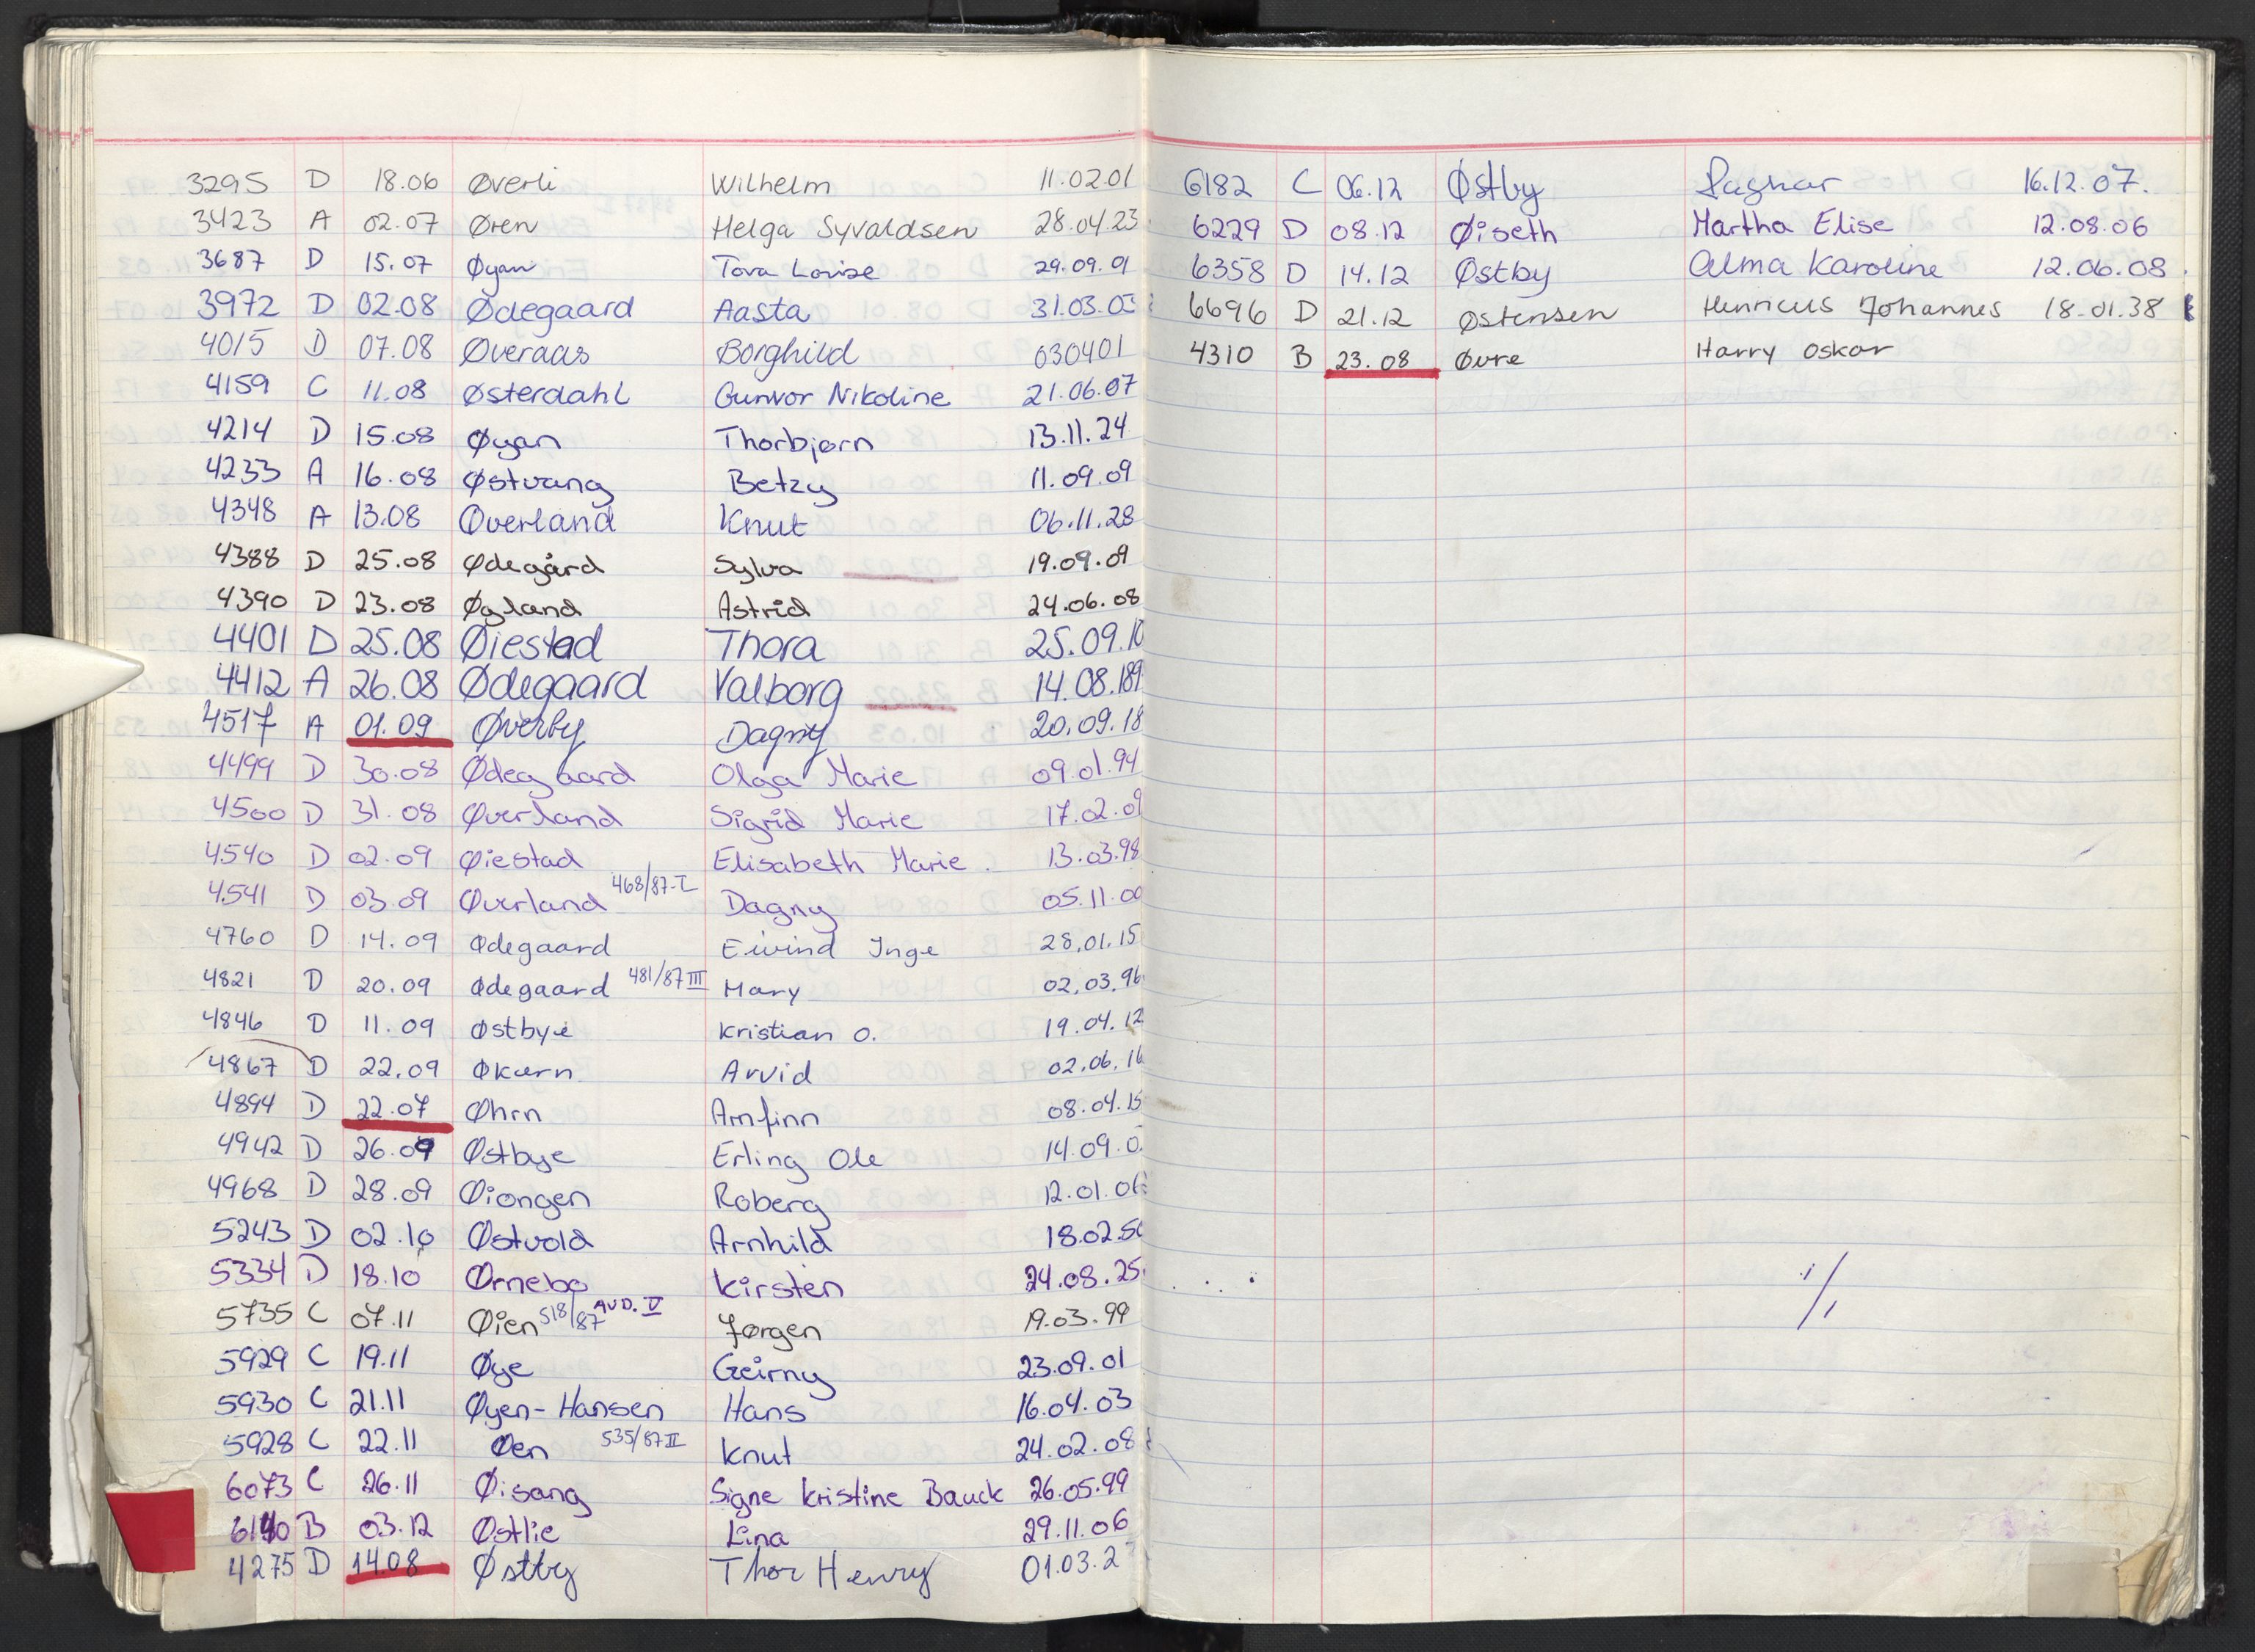 3295 D 18.06 Øverli Wilhelm 11.02.01
3423 A 02.07 Øren Helga Syvaldsen 28.04.23
3687 D 15.07 Øyan Tora Lovise 29.09.01
3972 D 02.08 Ødegaard Aasta 31.03.03
4015 D 07.08 Øveraas Borghild 030401
4159 C 11.08 Østerdahl Gunvor Nikoline 21.06.07
4214 D 15.08 Øyan Thorbjørn 13.11.24
4233 A 16.08 Østvang Betzy 11.09.09
4348 A 13.08 Øverland Knut 06.11.28
4388 D 25.08 Ødegård Sylva 19.09.09
4390 D 23.08 Øgland Astrid 24.06.08
4401 D 25.08 Øiestad Thora 25.09.10
4412 A 26.08 Ødegaard Valborg 14.08.189
4517 A 01.09 Øverby Dagny 20.09.18
4499 D 30.08 Ødegaard Olga Marie 09.01.94
4500 D 31.08 Øverland Sigrid Marie 17.02.09
4540 D 02.09 Øiestad Elisabeth Marie 13.03.98
4541 D 03.09 Øverland 468/87-I Dagny 05.11.00
4760 D 14.09 Ødegaard Eivind Inge 28.01.15
4821 D 20.09 Ødegaard 481/87 III Mary 02.03.96
4846 D 11.09 Østbye Kristian O. 19.04.12
4867 D 22.09 Økern Arvid 02.06.16
4894 D 22.07 Øhrn Arnfinn 08.04.15
4942 D 26.09 Østbye Erling Ole 14.09.0
4968 D 28.09 Øiongen Roberg 12.01.06
5243 D 02.10 Østvold Arnhild 18.02.50
5334 D 18.10 Ørnebo Kirsten 24.08.25
5735 C 07.11 Øien 518/87 AVD. V Jørgen 19.03.99
5929 C 19.11 Øye Geirny 23.09.01
5930 C 21.11 Øyen-Hansen Hans 16.04.03
5928 C 22.11 Øen 535/87 II Knut 24.02.08
6073 C 26.11 Øisang Signe Kristine Bauck 26.05.99
6140 B 03.12 Østlie Lina 29.11.06
4275 D 14.08 Østby Thor Henry 01.03.2
6182 C 06.12 Østby Ragnar 16.12.07.
6229 D 08.12 Øiseth Martha Elise 12.08.06
6358 D 14.12 Østby Alma Karoline 12.06.08
6696 D 21.12 Østensen Henricus Johannes 18.01.38
4310 B 23.08 Øvre Harry Oskar